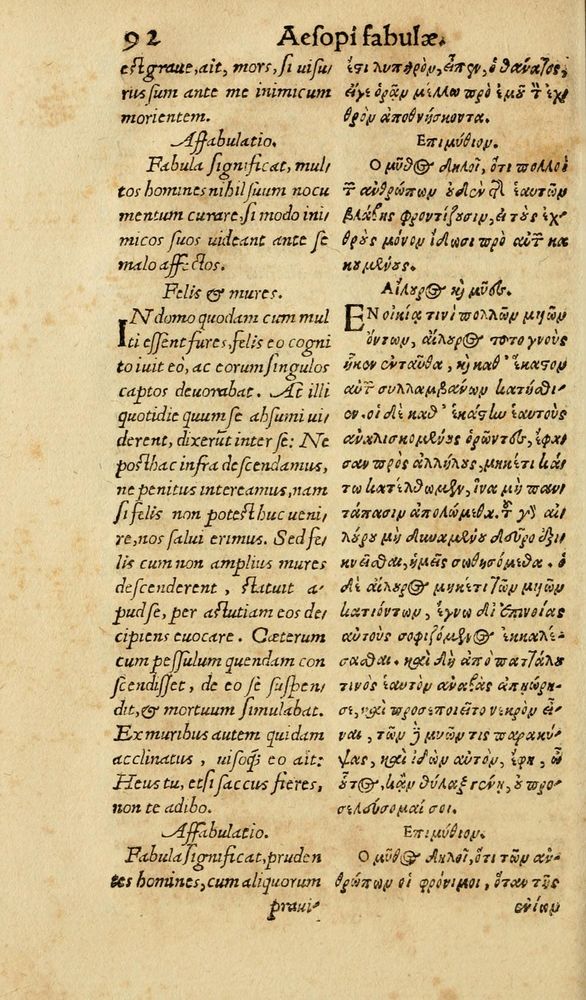 92 Aesopi fabulæ.
est graue, ait, mors, si uisu/
rus sum ante me inimicum
morientem.
Affabulatio.
Fabula significat, mul/
tos homines nihil suum nocu
mentum curare, si modo ini/
micos suos uideant ante se
malo affectos.
Felis & mures.
IN domo quodam cum mul
ti essent fures, felis eo cogni
to iuit eo, ac eorum singulos
captos deuorabat. At illi
quotidie quum se absumi ui/
derent, dixerũt inter se: Ne
posthac infra descendamus,
ne penitus intereamus, nam
si felis non potest huc ueni/
re, nos salui erimus. Sed fe/
lis cum non amplius mures
descenderent, statuit a/
pud se, per astutiam eos de/
cipiens euocare. Cæterum
cum pessulum quendam con
scendisset, de eo se suspen/
dit, & mortuum simulabat.
Ex muribus autem quidam
acclinatus, uisoq; eo ait:
Heus tu, etsi saccus fieres,
non te adibo.
Affabulatio.
Fabula significat, pruden
tes homines, cum aliquorum
praui/
ἔτι λυπηρὸν, εἶπεν, ὁ θάνατος,
εἴγε ὁρᾷν μέλλω πρὸ ἐμοῦ τ̀ ἐχ
θρὸν ἀποθνήσκοντα.
Επιμύθιον.
Ο μῦθος δηλοῖ, ὅτι πολλοὶ
τ̃ ἀνθρώπων οὐδὲν τ̃ ἑαυτῶν
βλάβης φροντίζουσιν, ἐὰν τοὺς ἐχ/
θροὺς μόνον ἴδωσι πρὸ αὐτ̃ κα
κουμένους.
Αἴλουρος κὴ μῦες.
ΕΝ οἰκίᾳ τινὶ πολλῶν μυῶν
ὄντων, αἴλουρος τοῦτο γνοὺς
ἧκεν ἐνταῦθα, κὴ καθ' ἕκαστον
αὐτ̃ συλλαμβάνων κατήσθι/
εν. οἱ δὲ καθ' ἑκάστην ἑαυτοὺς
ἀναλισκομένους ὁρῶντες, ἔφα/
σαν πρὸς ἀλλήλους, μηκέτι κά/
τω κατέλθωμεν, ἵνα μὴ παν/
τάπασιν ἀπολώμεθα. τ̃ γὰρ αἰ
λούρου μὴ δυναμένου δεῦρο ἐξι/
κνεῖσθαι, ἡμεῖς σωθησόμεθα. ὁ
δὲ αἴλουρος μηκέτι τῶν μυῶν
κατιόντων, ἔγνω δι' ἐπινοίας
αὐτοὺς σοφιζόμενος ἐκκαλέ/
σασθαι. καὶ δὴ ἀπὸ πατζάλου
τινὸς ἑαυτὸν ἀναβὰς ἀπηώρη/
σε, καὶ προσεποιεῖτο νεκρὸν εἶ/
ναι, τῶν δὲ μυῶν τις παρακύ/
ψας, καὶ ἰδὼν αὐτὸν, ἔφη, ὦ
οὗτος, κἂν θύλαξ γένῃ, οὐ προ/
σελεύσομαί σοι.
Επιμύθιον.
Ο μῦθος δηλοῖ, ὅτι τῶν ἀν/
θρώπων οἱ φρόνιμοι, ὅταν τῆς
ἐνίων